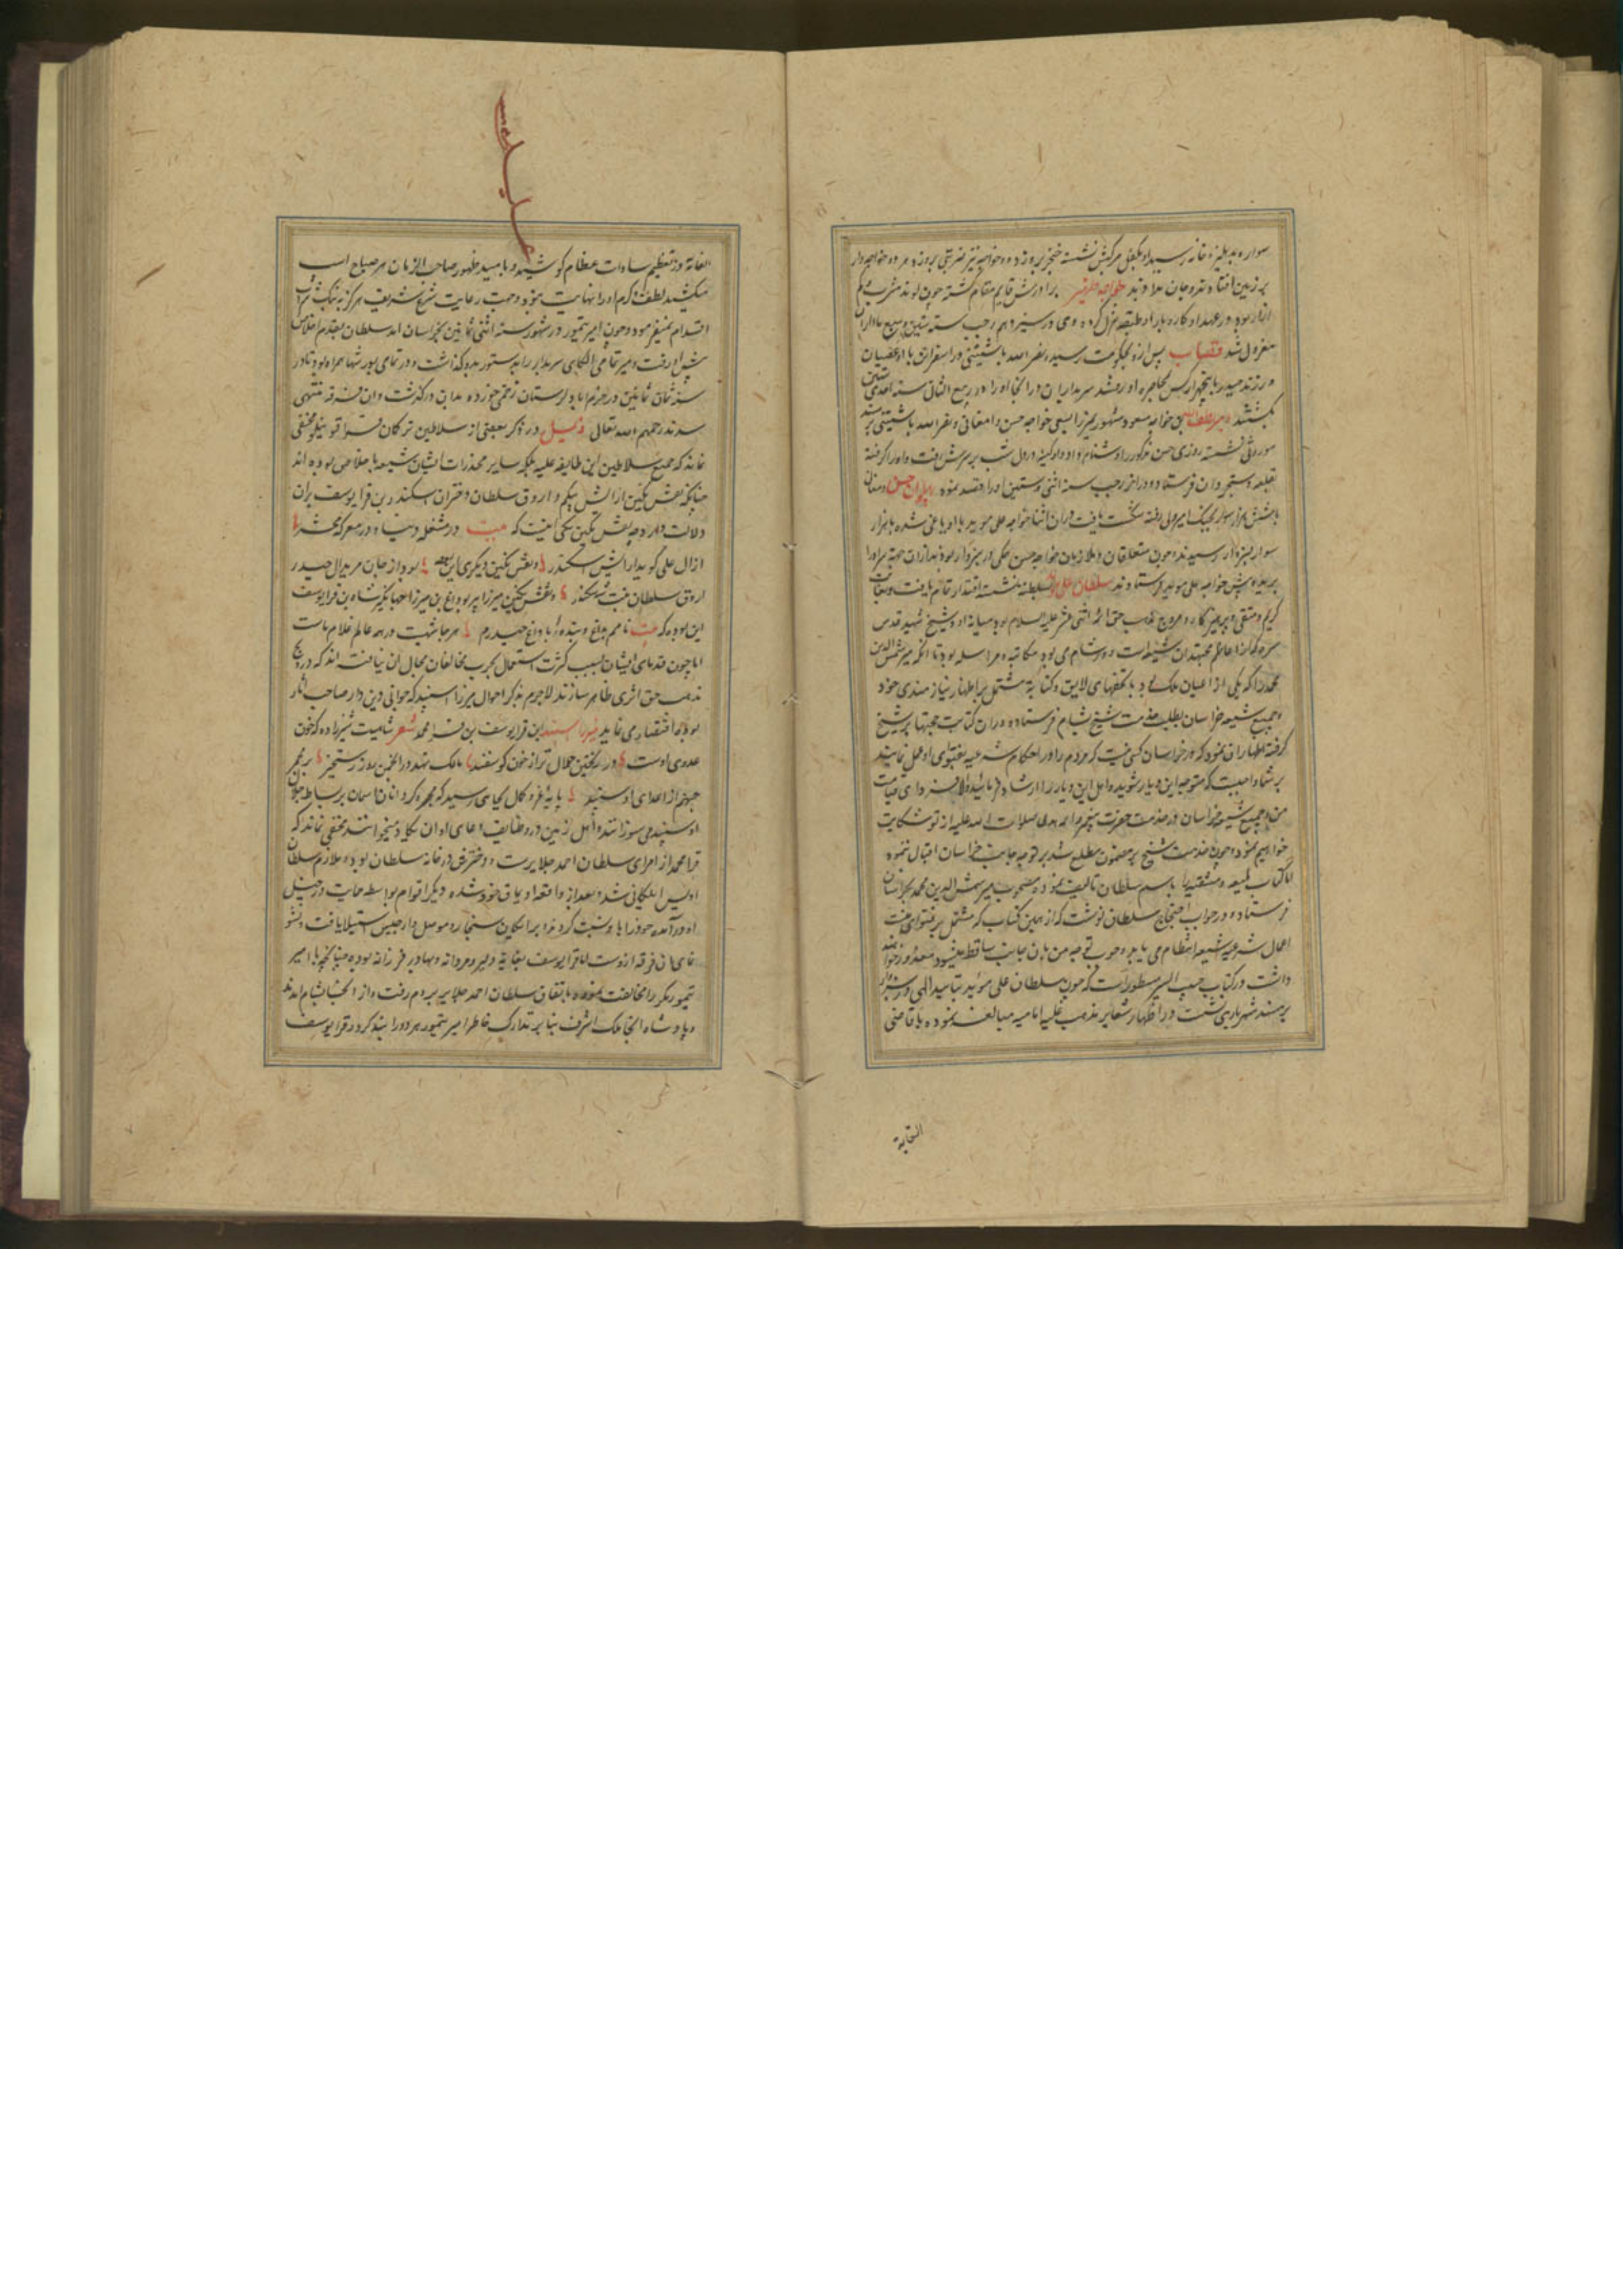 سواره بدهلیز خانه رسید او بکفل مرکبش نشسته خنجر برو زد و خواجه نیز ضربتی برو زد هر دو
بر زمین افتادند و جان بدادند خواجه ظهیر برادرش قایم مقام گشته چون لوند مشرب و کم
آزار بود در عهد او کاره بار او طبقه تنزل کرده در سیزدهم رجب سنه ستین و سبعمائه از آن
معزول شد قصاب پس ازو بحکومت رسید و نصر الله باشتینی در اسفراین با او عصیان
ورزید حیدر با چهار کس بمحاصره او رفته سربداران در آنجا او را در ربیع الثانی سنه احدی ستین
بکشتند میر لطف الله بن خواجه مسعود مشهور بمیرزا بسعی خواجه حسن دامغانی و نصر الله باشتینی بر مسند
موروثی نشسته روزی حسن مذکور را دشنام داد او کینه در دل شب بر سرش رفت و او را گرفته
بقلعه دستجردان فرستاد و در آخر رجب سنه اثنی وستین او را قصد نموده پهلوان حسن دامغانی
با شش هزار سوار بجنک امیر ولی رفته شکست یافت در آن اثنا خواجه علی موید با او یاغی شده با هزار
سوار بسبزوار رسیدند و چون متعلقان و ملازمان خواجه حسن همکی در سبزوار بودند از آن جهة سر او را
بریده پیش خواجه علی موید فرستادند سلطان علی موید بسلطنة نشسته اقتدار تمام یافت و بغایت
کریم و متقی و پرهیزکار و مروج مذهب حق ائمه اثنی عشر علیهم السلام بود میانه او و شیخ شهید قدس
سره که از اعاظم مجتهدان شیعه است و در شام می بود مکاتبه و مراسله بود تا آنکه میر شمس الدین
محمد را که یکی از اعیان ملک بود با تحفهای لایق و کتابة مشتمل بر اظهار نیازمندی خود
و جمیع شیعه خراسان بطلب خدمت شیخ بشام فرستاده و در آن کتابت جهتها بر شیخ
گرفته اظهار آن نمود که در خراسان کسی نیست که مردم را در احکام شرعیه بفتوای او عمل نمایند
بر شما واجبست که متوجه این دیار شوید و اهل این دیار را ارشاد فرمایید و الا فردای قیامت
من و جمیع شیعه خراسان در خدمت حضرت پیغمبر و ائمه هدی صلوات الله علیه از تو شکایت
خواهیم نمود و چون خدمت شیخ بر مضمون مطلع شد بر توجه جانب خراسان اقبال ننموده
اما کتاب لمعه دمشقیه را باسم سلطان تالیف نموده مصحوب میر شمس الدین محمد بخراسان
فرستاده و در جواب احتجاج سلطان نوشت که از همین کتاب که مشتمل بر فتوای منست
اعمال شرعیه شیعه انتظام می یابد و وجوب توجه من بآن جانب ساقط میشود معذور خواهند
داشت در کتاب حبیب السیر مسطور است که چون سلطان علی موید بتایید الهی در سبزوار
بر مسند شهریاری نشست در اظهار شعایر مذهب علیه امامیه مبالغه نموده باقاصی
الغایة
الغایة در تعظیم سادات عظام کوشید و بامید ظهور صاحب الزمان هر صباح اسب
میکشید لطف و کرم او را نهایت نبود و جهت رعایت شرع شریف هرگز به بنک و شراب
اقدام نمیفرمود و چون امیر تیمور در شهور سنه اثنی ثمانین بخراسان آمد سلطان بقدم اخلاص
پیش او رفت و میر تمامی الکای سربدار را بدستور بدو گذاشت و در تمامی یورشها همراه بود تا در
سنه ثمان ثمانین در لرستان زخمی خورده بدان درگذشت و آن فرقه منتهی
شدند رحمهم الله تعالی ذیل در ذکر بعضی از سلاطین ترکان قراقوینلو مخفی
نماند که جمیع سلاطین این طایفه علیه بلکه سایر مخدرات ایشان شیعه با خلاص بوده اند
چنانکه نقش نگین آرایش بیکم و اروق سلطان دختران اسکندر بن قرا یوسف بران
دلالت دارد چه نقش نگین یکی اینست که بیت در مشغله دنیا و در معرکه محشر
از آل علی گوید آرایش اسکندر و نقش نگین دیکری این بود بود از جان مرید آل حیدر
اروق سلطان بنت شه سکندر و نقش نگین میرزا پیر بوداغ بن میرزا جهانگیر شاه بن قرا یوسف
این بوده که بیت نامم بداغ و بنده با داغ حیدرم هر جا شهیست در همه عالم غلام ماست
اما چون قدمای ایشان بسبب کثرت اشتغال بحرب مخالفان مجال آن نیافته اند که در ترویج
مذهب حق اثری ظاهر سازند لاجرم بذکر احوال میرزا اسپند که جوانی دین دار صاحب آثار
بوده اقتصار می نماید میرزا اسپند ابن قرا یوسف بن قرا محمد شعر شامیت شیرزاده که خون
عدوی اوست در ریختن حلال تر از خون کوسفند مالک نهد در انجمن روز رستخیز بر مجمر
جهنم از اعدای او سپند پایه قدر و کمال بجایی رسید که مجمره کردانان آسمان بر بساط جلال
او سپند می سوزانند و اهل زمین در وظایف دعای او ان یکاد میخوانند مخفی نماند که
قرا محمد از امرای سلطان احمد جلایرست و دخترش در خانه سلطان بود و ملازم سلطان
اویس ایلکانی شد و بعد از واقعه او یاق خود شده دیکر اقوام بواسطه حمایت در خیل
او در آمده خود را باو نسبت کردند و بر اماکن سنجار و موصل و ارجیش استیلا یافت و نشو
نمای آن فرقه ازوست اما قرا یوسف بغایة دلیر و مردانه و بهادر فرزانه بوده چنانچه با امیر
تیمور مکرر مخالفت نموده و باتفاق سلطان احمد جلایر بروم رفت و از آنجا بشام آمدند
و پادشاه آنجا ملک اشرف بنا بر تدارک خاطر امیر تیمور هر دو را بند کرد و قرا یوسف